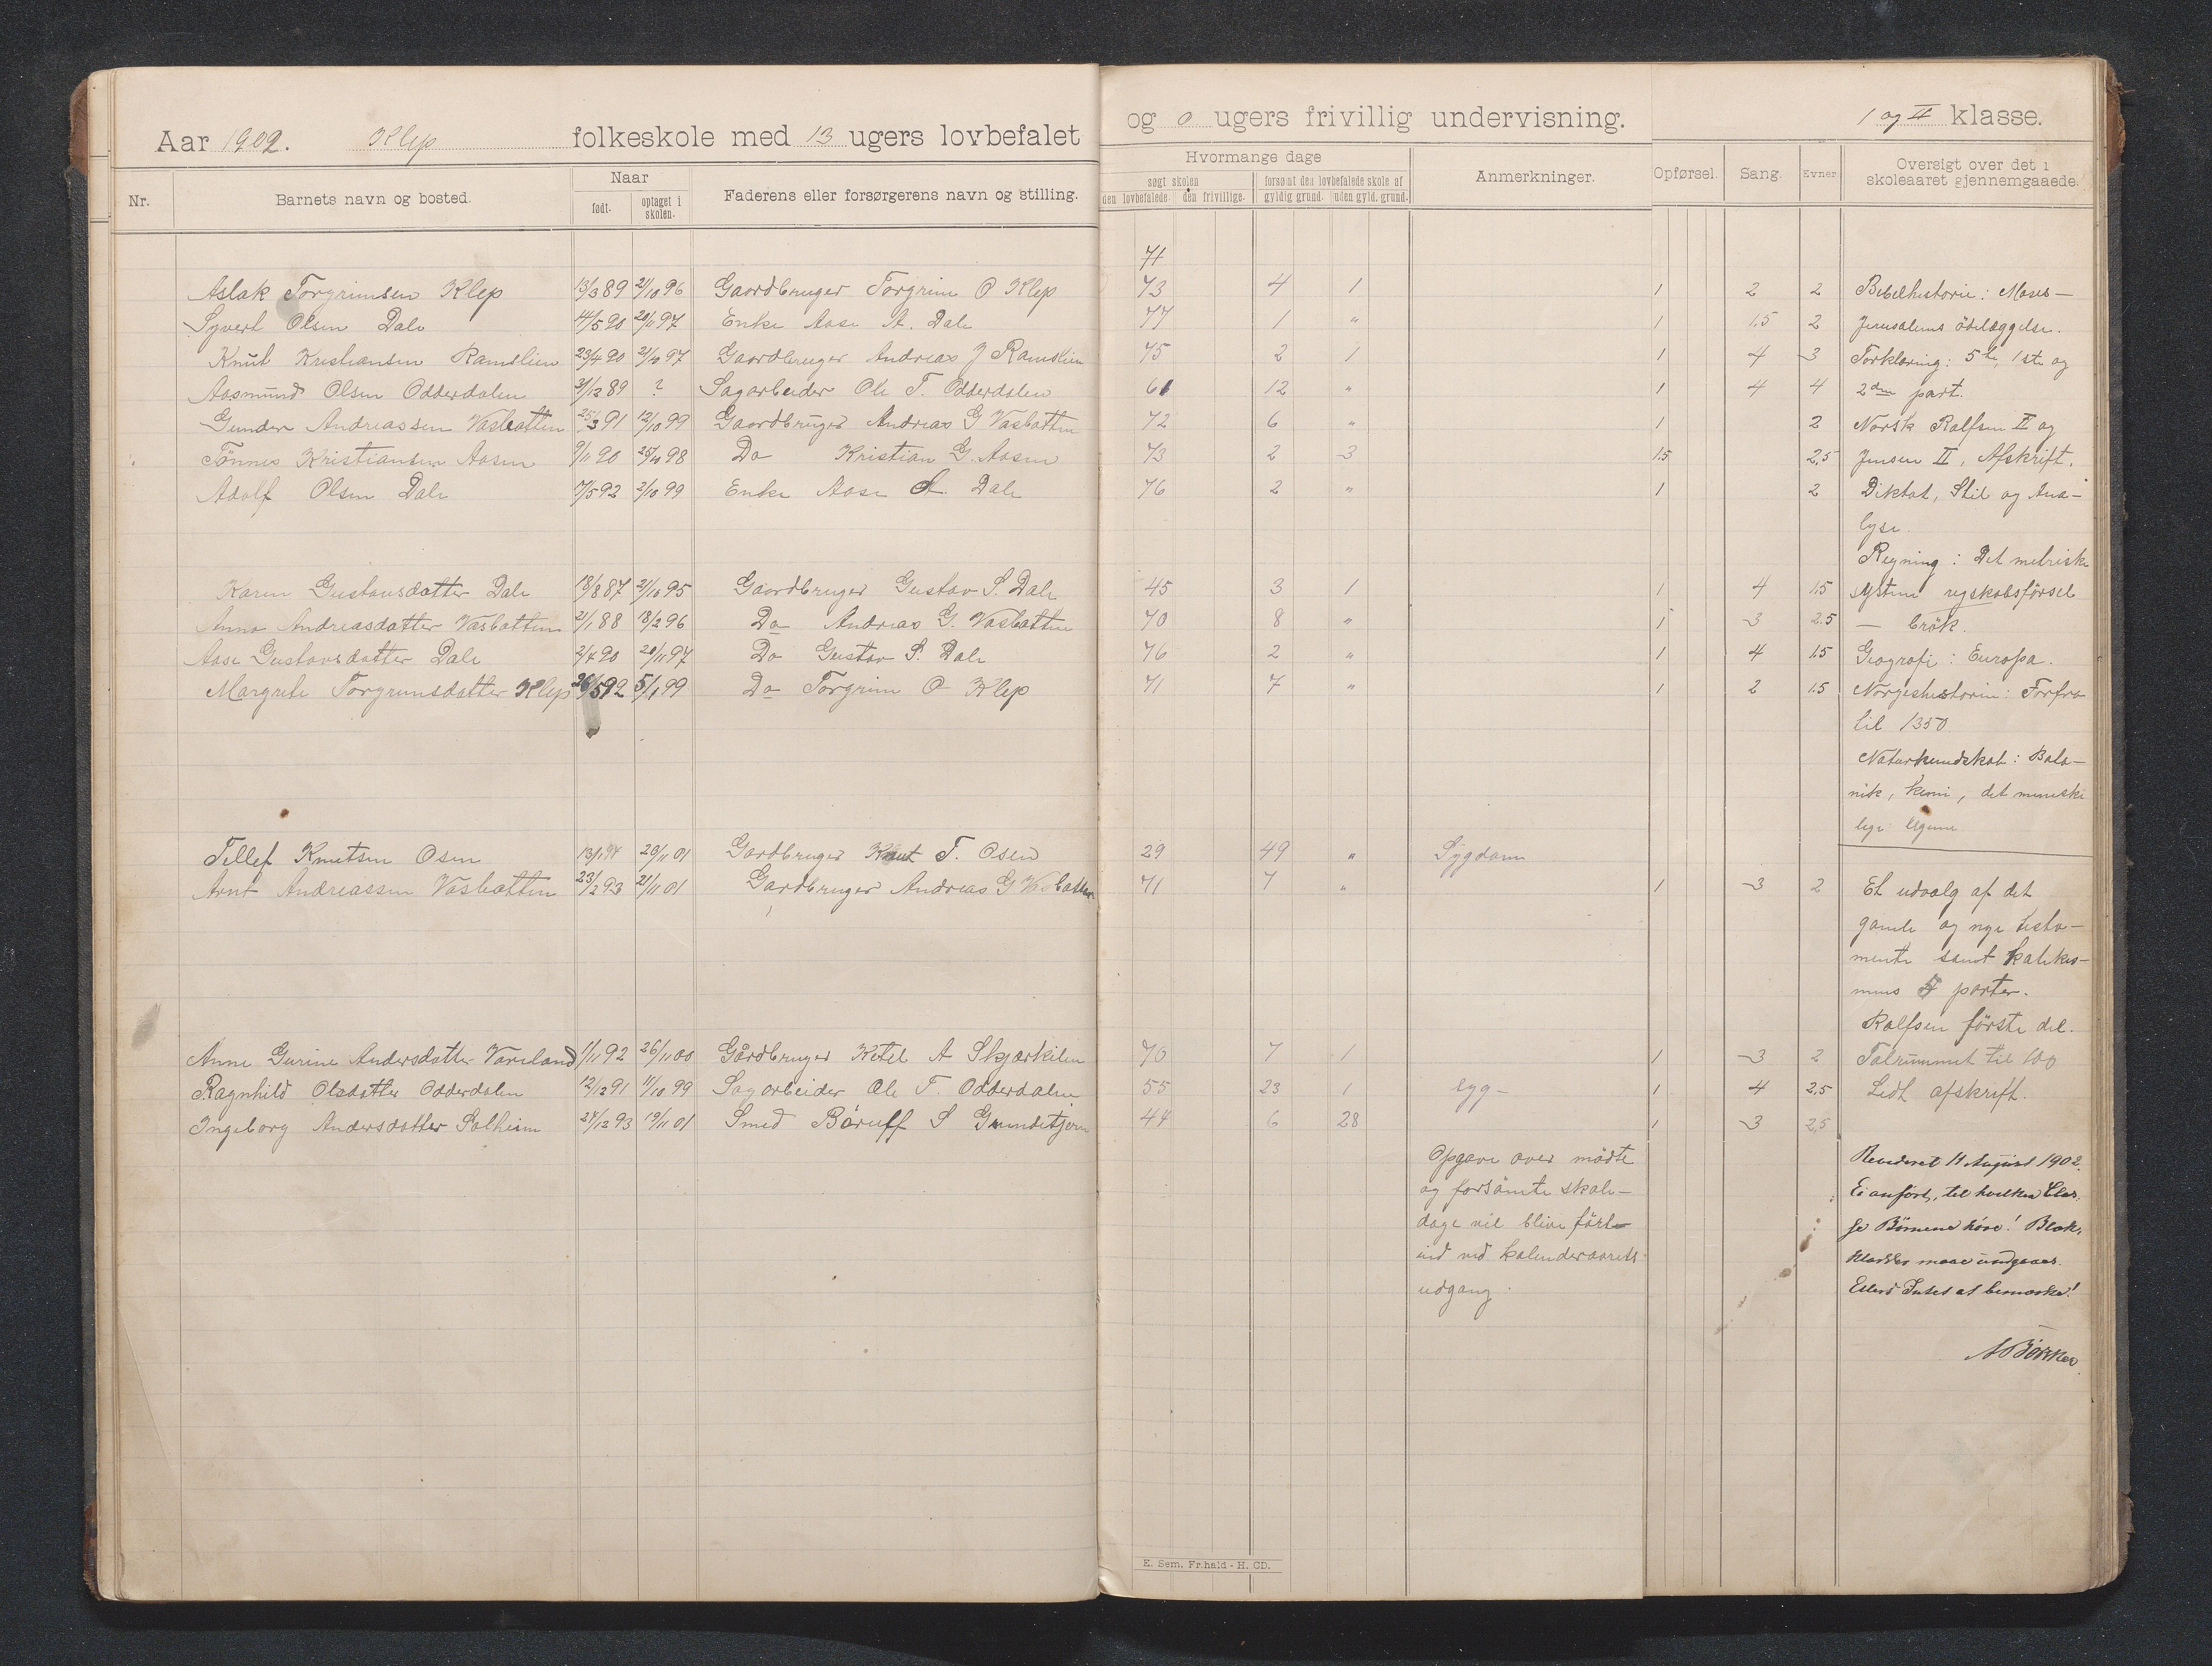 Aar 1902. Klep folkeskole med 13 ugers lovbefalet og 0 ugers frivillig undervisning. 1 og II klasse.
Nr. Barnets navn og bosted. Naar født. optaget i skolen. Faderens eller forsørgerens navn og stilling. Hvormange dage søgt skolen den lovbefalede. den frivillige. forsømt den lovbefalede skole af gyldig grund. uden gyld. grund. Anmerkninger. Opførsel. Sang. Evner. Oversigt over det i skoleaaret gjennemgaaede.
71
Aslak Torgrimsen Klep 13/3 89 21/10 96 Gaardbruger Torgrim O Klep 73 4 1 1 2 2 Bibelhistorie: Moses—
Syvert Olsen Dale 14/5 90 20/11 97 Enke Aase A. Dale 77 1 " 1 1.5 2 Jerusalems ödelæggelse.
Knut Kristiansen Ramslien 23/4 90 21/10 97 Gaardbruger Andreas J Ramslien 75 2 1 1 4 3 Forklaring: 5te, 1ste og
Aasmund Olsen Odderdalen 31/12 89 ? Sagarbeider Ole T. Odderdalen 61 12 " 1 4 4 2den part.
Gunder Andreassen Vasbotten 25/3 91 12/10 99 Gaardbruger Andreas G Vasbotten 72 6 " 1 2 Norsk Rolfsen II og
Tönnes Kristiansen Aasen 9/11 90 25/10 98 Do Kristian G. Aasen 73 2 3 1.5 2.5 Jensen II, Afskrift,
Adolf Olsen Dale 7/5 92 2/10 99 Enke Aase A. Dale 76 2 " 1 2 Diktat, Stil og Ana—
lyse.
Regning: Det metriske
Karen Gustavsdatter Dale 18/8 87 21/10 95 Gaardbruger Gustav S. Dale 45 3 1 1 4 1.5 System regskabsförsel
Anna Andreasdatter Vasbotten 21/1 88 18/2 96 Do Andreas G. Vasbotten 70 8 " 1 3 2.5 — brök.
Aase Gustavsdatter Dale 2/4 90 20/11 97 Do Gustav S. Dale 76 2 " 1 4 1.5 Geografi: Europa.
Margrete Torgrimsdatter Klep 26/5 92 5/1 99 Do Torgrim O Klep 71 7 " 1 2 1.5 Norgeshistorie: Forfra
til 1350.
Naturkundskab: Bota—
nik, kemi, det meneske
lige legeme
Tellef Knutsen Osen 13/1 94 20/11 01 Gardbruger Knut T. Osen 29 49 " Sygdom
Arnt Andreassen Vasbotten 23/2 93 21/11 01 Gardbruger Andreas G Vasbotten 71 7 " 1 3 2 Et udvalg af det
gamle og nye testa—
mente samt katekis—
mus 5 parter.
Rolfsen förste del.
Anne Gurine Andersdatter Vareland 1/11 92 26/11 00 Gårdbruger Ketel A Skjærkelien 70 7 1 1 3 2 Talrummet til 100
Ragnhild Olsdatter Odderdalen 12/12 91 11/10 99 Sagarbeider Ole T. Odderdalen 55 23 1 syg— 1 4 2.5 Ledt afskrift.
Ingeborg Andersdatter Solheim 24/12 93 19/11 01 Smed Böruff S Grundetjern 44 6 28 1 3 2.5
Opgave over mödte
og forsömte skole—
dage vil blive fört
ind ved kalenderaarets
udgang.
Revideret 11 August 1902.
Ei anfört, til hvilken Clas.
se Börnene höre! Blæk,
klatter maae undgaaes.
Ellers Intet at bemærke!
E. Sem. Fr.hald - H. CD.